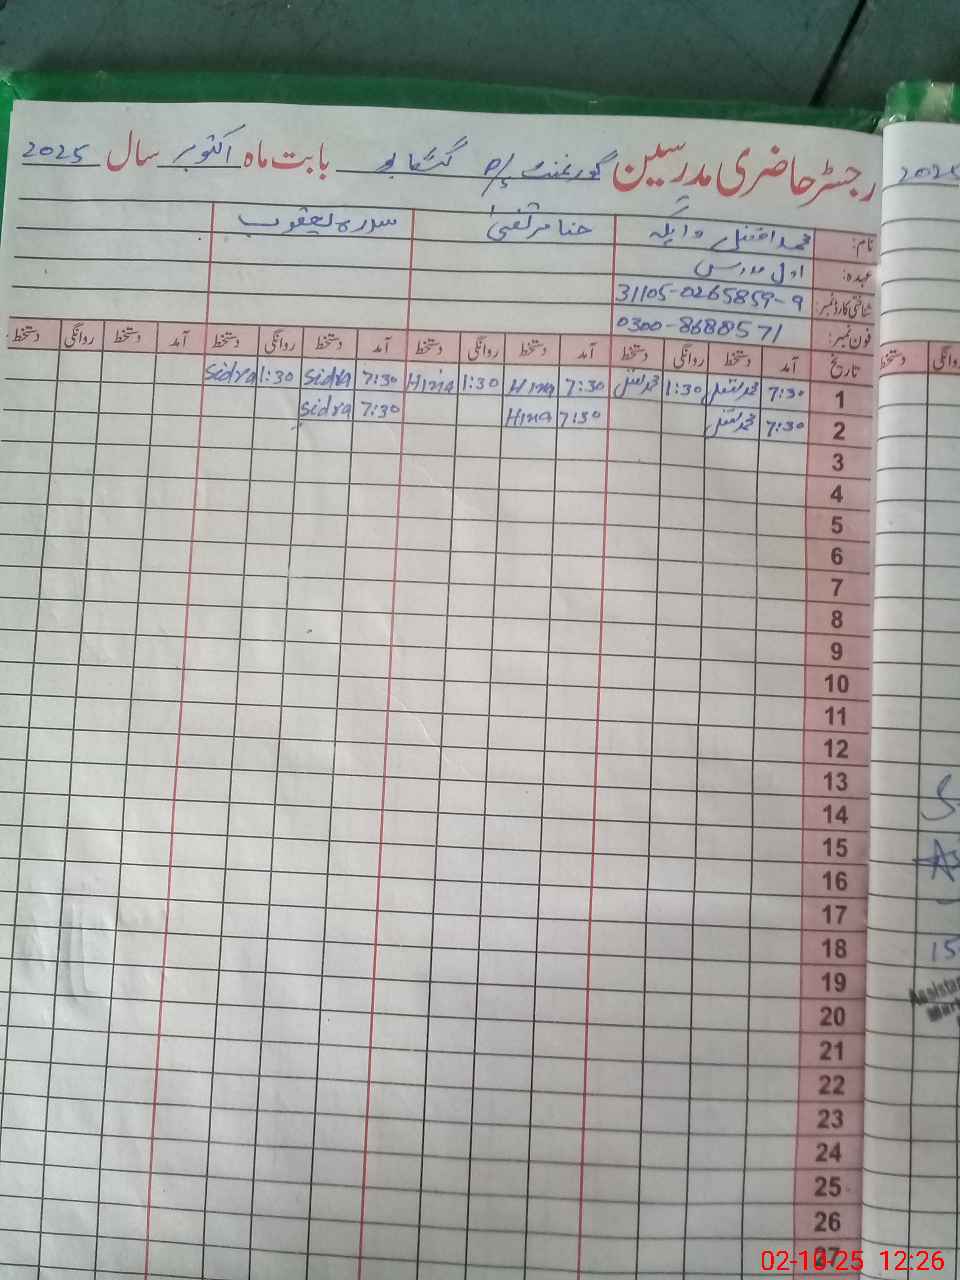 رجسٹر حاضری مدرسین گورنمنٹ p/s بابت ماہ اکتوبر سال 2025
2025
نام: محمد افضل حنا مرتضیٰ سدرہ یعقوب
عہدہ: اول مدرس
شناختی کارڈ نمبر: 31105-0265859-9
فون نمبر: 0300-8688571
تاریخ آمد دستخط روانگی دستخط آمد دستخط روانگی دستخط آمد دستخط روانگی دستخط آمد دستخط روانگی دستخط
روانگی دستخط
1 7:30 1:30 7:30 Hina 1:30 Hina 7:30 Sidra 1:30 Sidra
2 7:30 7:30 Hina 7:30 Sidra
3
4
5
6
7
8
9
10
11
12
13
14
15
16
17
18
19
20
21
22
23
24
25
26
27
15
02-10-25 12:26